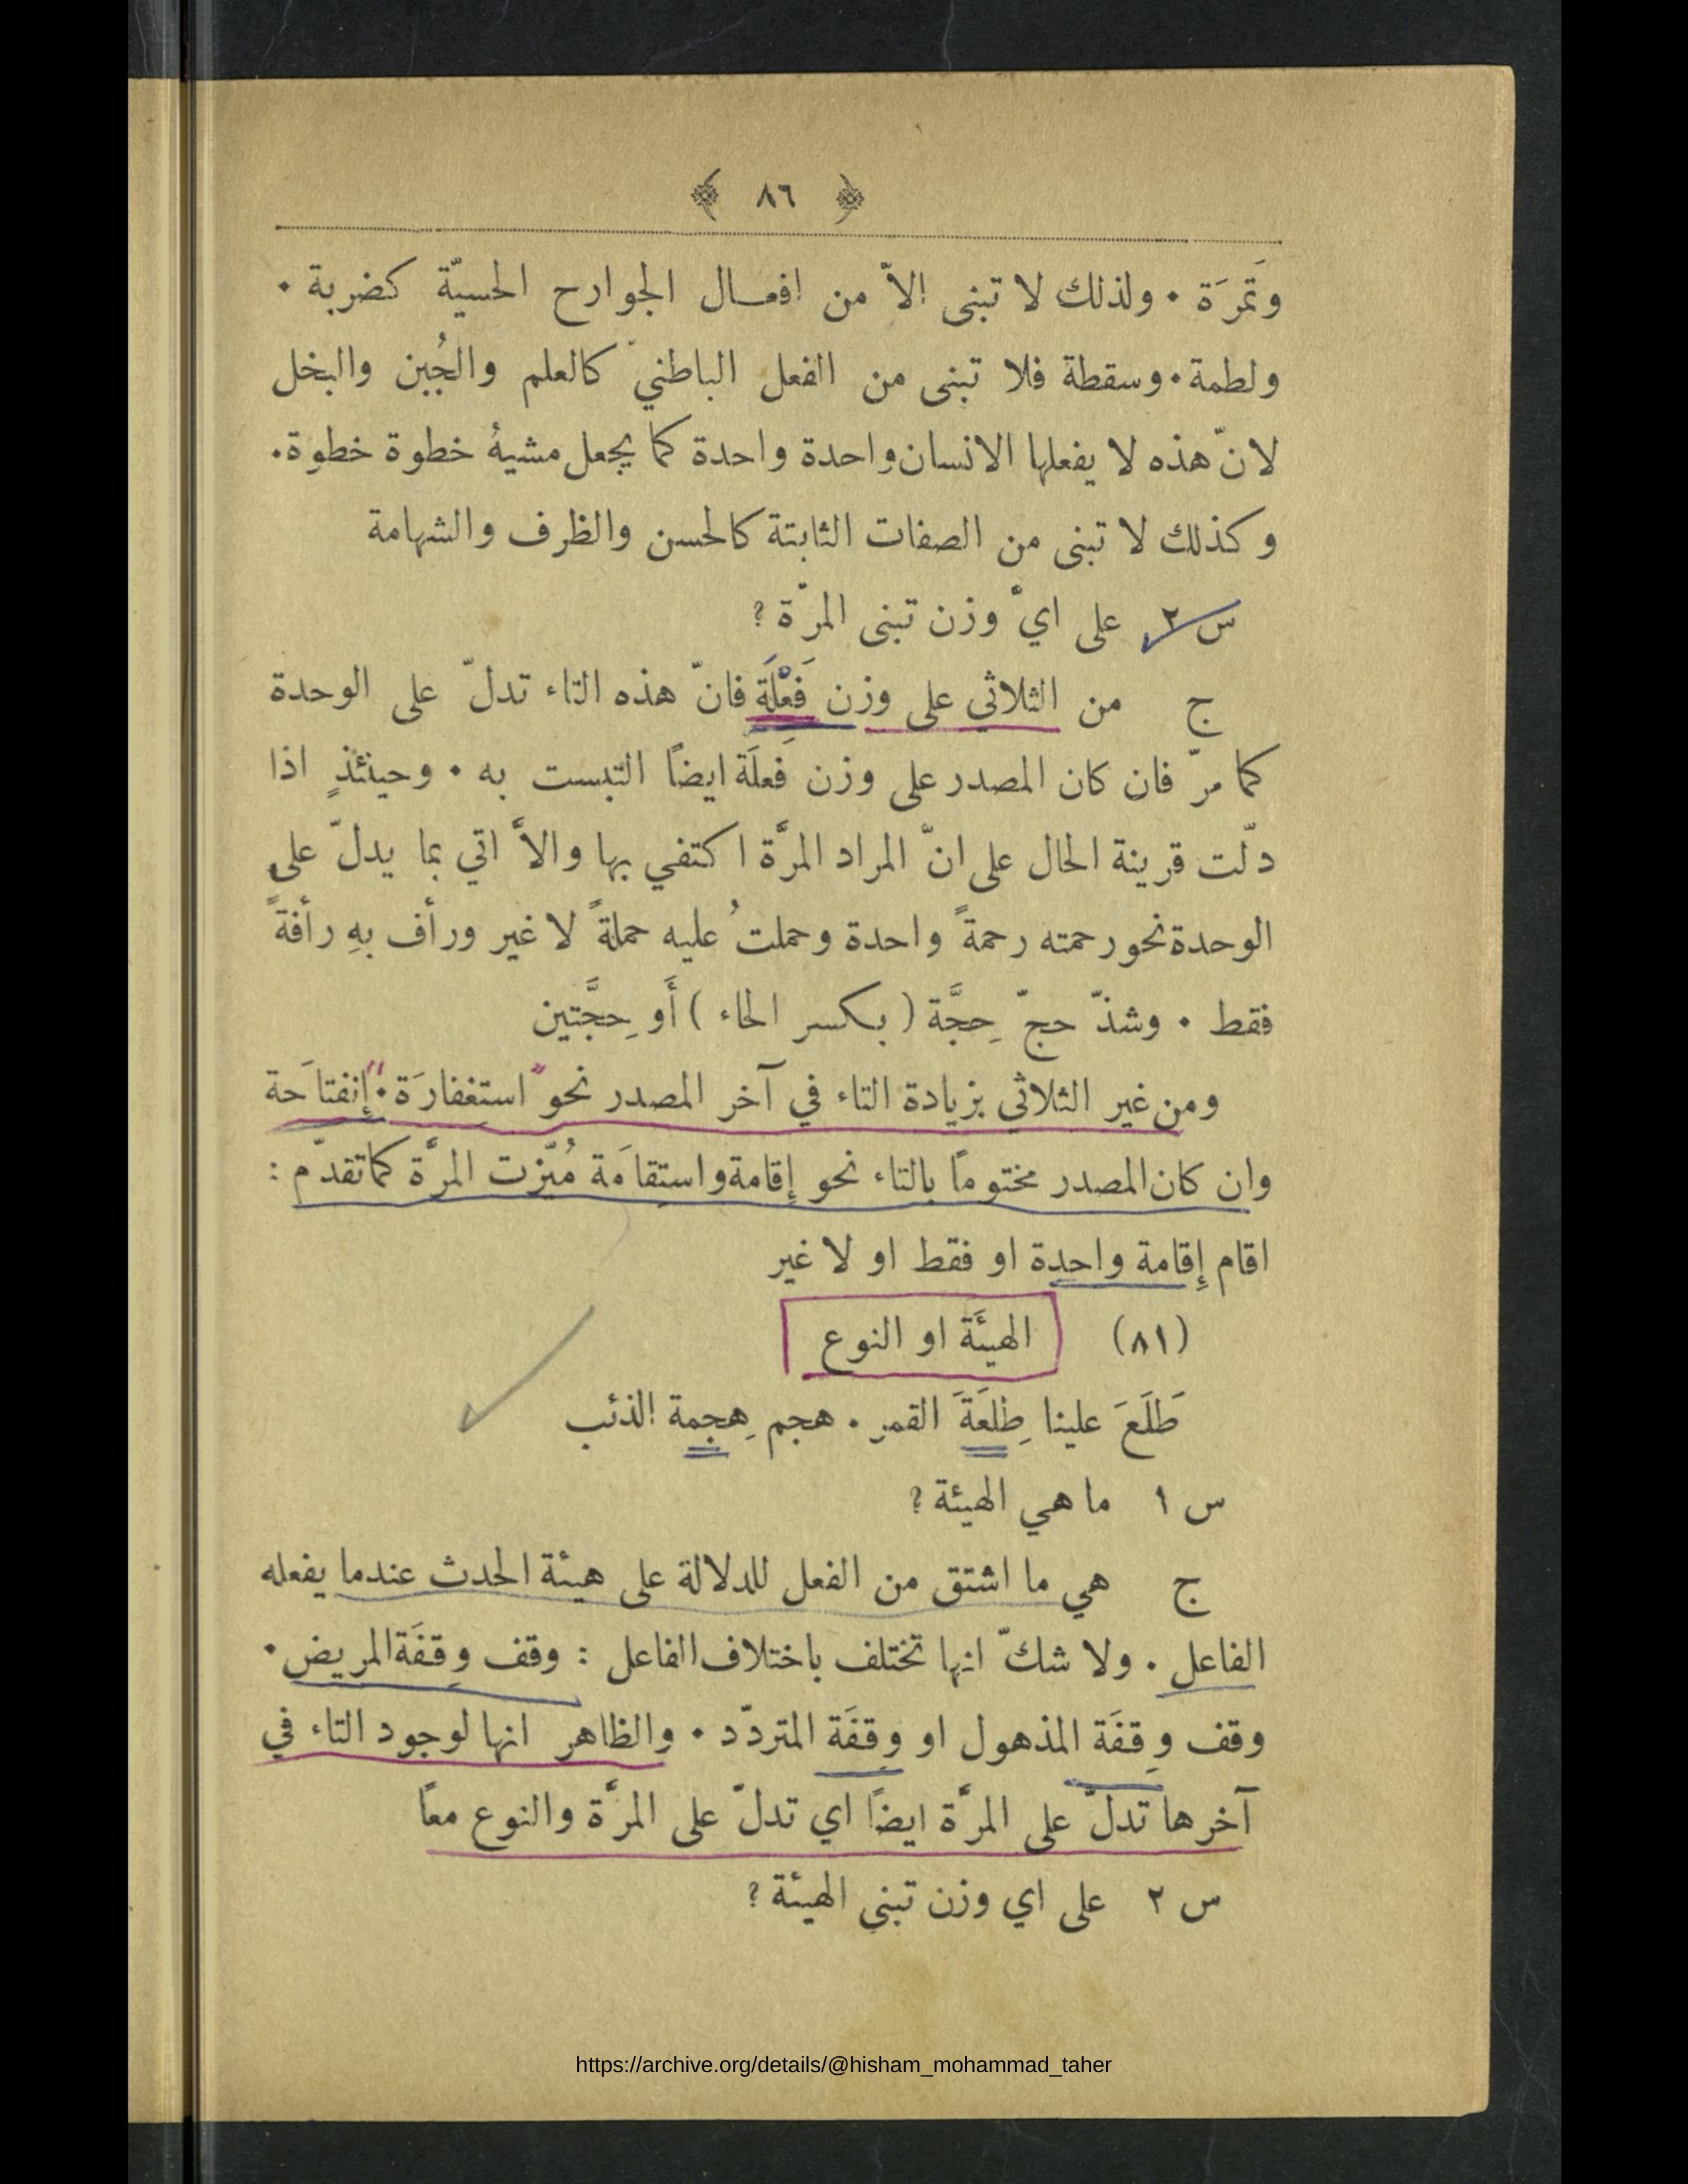 ﴿ ٨٦ ﴾
وتَمرَة • ولذلك لا تبنى الاّ من افعال الجوارح الحسيّة كضربة •
ولطمة • وسقطة فلا تبنى من الفعل الباطنيّ كالعلم والجُبن والبخل
لانّ هذه لا يفعلها الانسان واحدة واحدة كما يجعل مشيهُ خطوة خطوة •
وكذلك لا تبنى من الصفات الثابتة كالحسن والظرف والشهامة
س ٢ على ايّ وزن تبنى المرّة ؟
ج من الثلاثي على وزن فَعْلَة فانّ هذه التاء تدلّ على الوحدة
كما مرّ فان كان المصدر على وزن فَعلَة ايضاً التبست به • وحينئذٍ اذا
دلّت قرينة الحال على انّ المراد المرَّة اكتفي بها والاَّ اتي بما يدلّ على
الوحدة نحو رحمته رحمةً واحدة وحملتُ عليه حملةً لا غير ورأف بهِ رأفةً
فقط • وشذّ حجّ حِجَّة ( بكسر الحاء ) أَو حِجَّتين
ومن غير الثلاثي بزيادة التاء في آخر المصدر نحو " استغفارَة • " إنفتاحَة
وان كان المصدر مختوماً بالتاء نحو إقامة واستِقامَة مُيّزت المرَّة كما تقدّم :
اقام إِقامة واحدة او فقط او لا غير
(٨١) الهيئَة او النوع
طَلَعَ علينا طِلعَةَ القمر • هجم هِجمة الذئب
س ١ ما هي الهيئة ؟
ج هي ما اشتق من الفعل للدلالة على هيئة الحدث عندما يفعله
الفاعل • ولا شكّ انها تختلف باختلاف الفاعل : وقف وِقفَة المريض •
وقف وِقفَة المذهول او وِقفَة المتردّد • والظاهر انها لوجود التاء في
آخرها تدلّ على المرَّة ايضاً اي تدلّ على المرَّة والنوع معاً
س ٢ على اي وزن تبنى الهيئة ؟
https://archive.org/details/@hisham_mohammad_taher